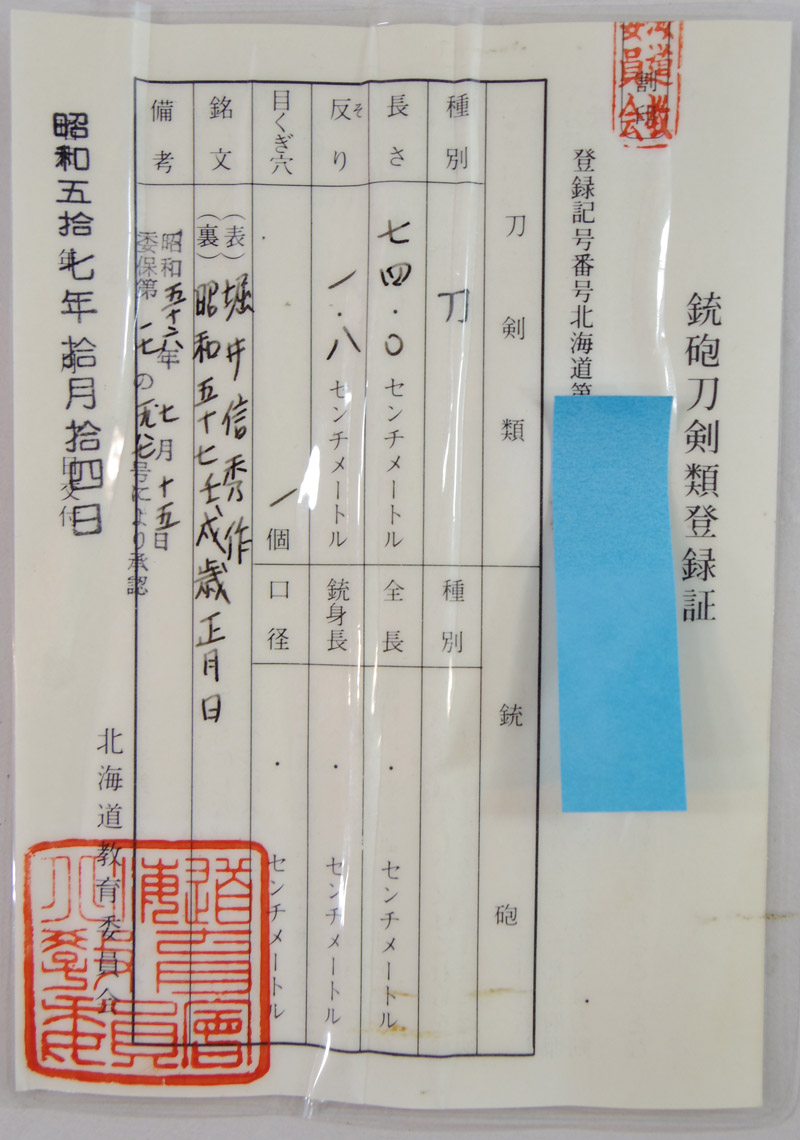 銃砲刀剣類登録証
登録記号番号北海道第
割印
刀剣類
銃砲
種別
刀
種別
長さ
七四・〇センチメートル
全長
・センチメートル
反り
そ
一・八センチメートル
銃身長
・センチメートル
目くぎ穴
一個
口径
・センチメートル
銘文
(表)堀井信秀作
(裏)昭和五十七壬戌歳正月日
備考
昭和五十六年七月十五日
委保第
号により承認
昭和五拾七年拾月拾四日
交付
北海道教育委員会